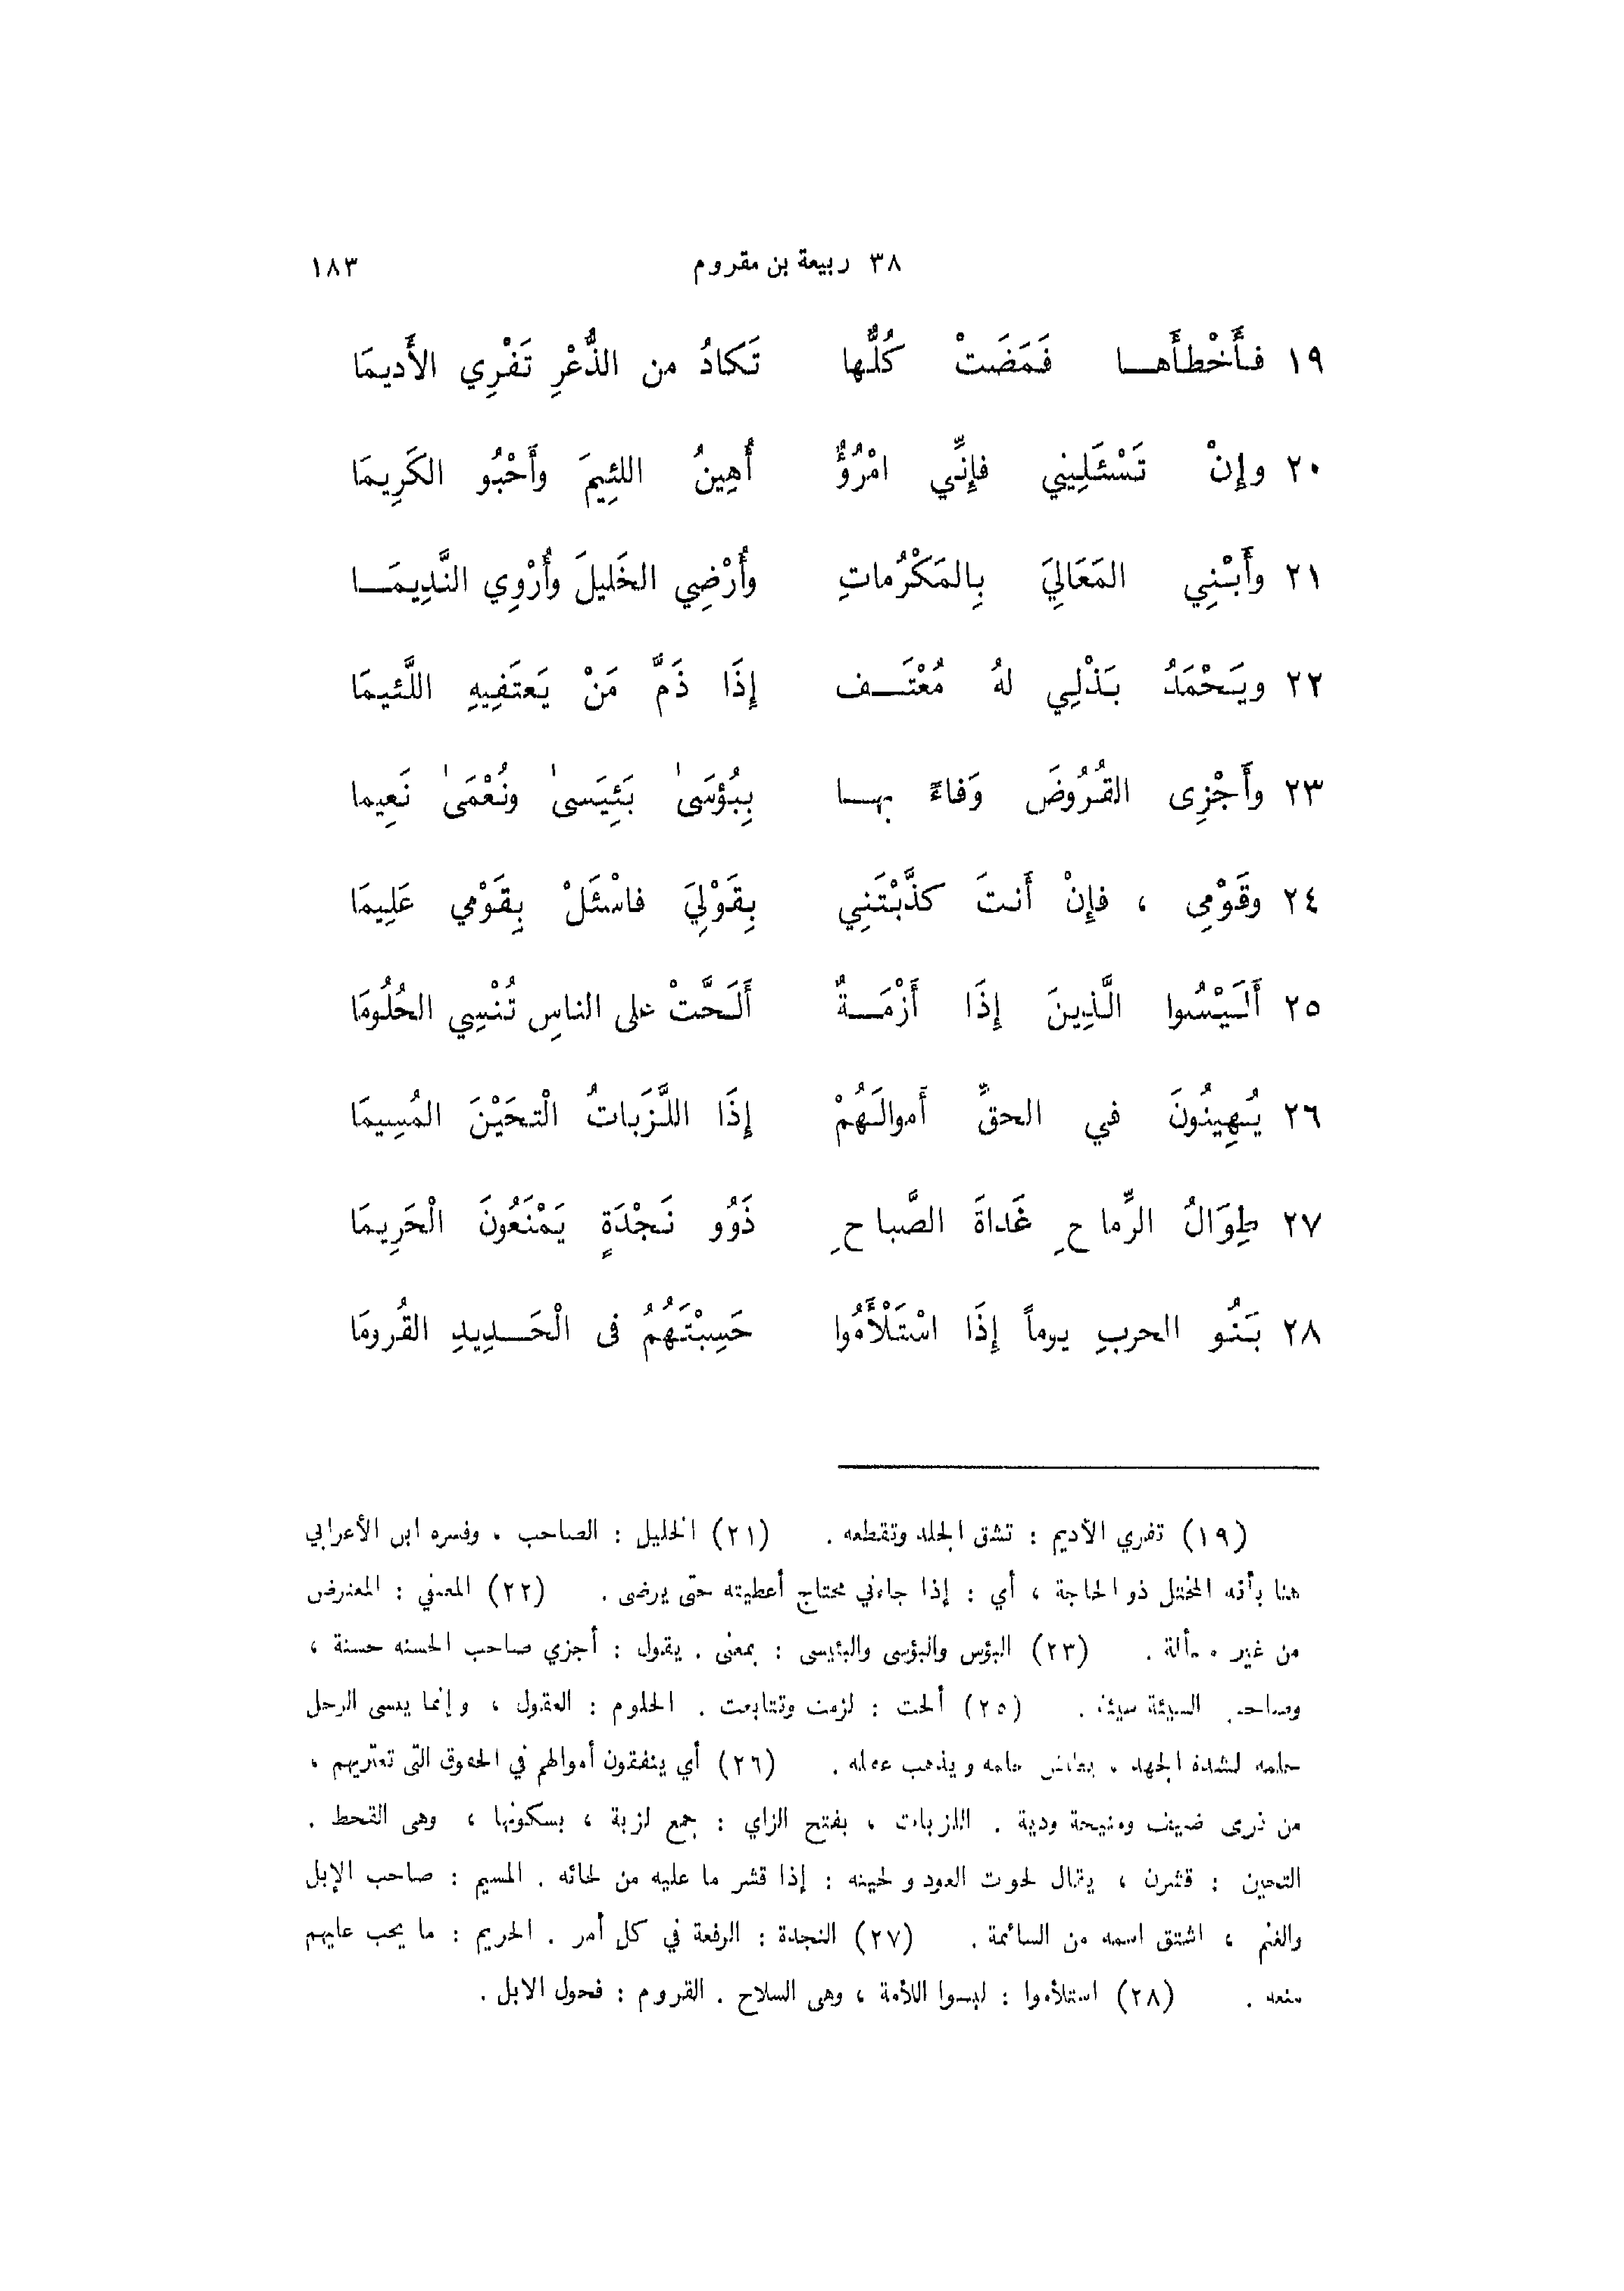 ٣٨ ربيعة بن مقروم ١٨٣
١٩ فأَخْطأَهـا فَمَضَتْ كُلُّها تَكادُ من الذُّعْرِ تَفْرِي الأَديمَا
٢٠ وإِنْ تَسْئَلِيني فإِنِّي امْرُؤٌ أُهِينُ اللئِيمَ وأَحْبُو الكَرِيمَا
٢١ وأَبْنِي المَعَالِيَ بِالمَكْرُماتِ وأُرْضِي الخَليلَ وأُرْوِي النَّدِيمَـا
٢٢ ويَحْمَدُ بَذْلِي لهُ مُعْتَـف إِذَا ذَمَّ مَنْ يَعتَفِيهِ اللَّئيمَا
٢٣ وأَجْزِى القُرُوضَ وَفاءً بهـا بِبُؤسَىٰ بَئِيسىٰ ونُعْمَىٰ نَعِيما
٢٤ وقَوْمِى ، فإِنْ أَنتَ كذَّبْتَنِي بِقَوْلِيَ فاسْئَلْ بِقَوْمِي عَلِيمَا
٢٥ أَلَيْسُوا الَّذِينَ إِذَا أَزْمَـةٌ أَلَحَّتْ على الناسِ تُنْسِي الحُلُومَا
٢٦ يُهِينُونَ في الحقِّ أَموالَهُمْ إِذَا اللَّزَباتُ الْتحَيْنَ المُسِيمَا
٢٧ طِوَالُ الرِّماحِ غَداةَ الصَّباحِ ذَوُو نَجْدَةٍ يَمْنَعُونَ الْحَرِيمَا
٢٨ بَنُو الحربِ يوماً إِذَا اسْتَلْأَمُوا حَسِبْتَهُمُ فى الْحَـدِيدِ القُرومَا
(١٩) تفري الأديم : تشق الجلد وتقطعه . (٢١) الخليل : الصاحب ، وفسره ابن الأعرابي
هنا بأنه المختل ذو الحاجة ، أي : إذا جاءني محتاج أعطيته حتى يرضى . (٢٢) المعتفي : المعترض
من غير مسألة . (٢٣) البؤس والبؤسى والبئيسى : بمعنى . يقول : أجزي صاحب الحسنه حسنة ،
وصاحب السيئة سيئة . (٢٥) ألحت : لزمت وتتابعت . الحلوم : العقول ، وإنما ينسى الرجل
حلمه لشدة الجهد ، حلمه ويذهب عقله . (٢٦) أي ينفقون أموالهم في الحقوق التى تعتريهم ،
من قرى ضيف ومنيحة ودية . اللزبات ، بفتح الزاي : جمع لزبة ، بسكونها ، وهى القحط .
التحين : قشرن ، يقال لحوت العود ولحيته : إذا قشر ما عليه من لحائه . المسيم : صاحب الإبل
والغنم ، اشتق اسمه من السائمة . (٢٧) النجدة : الرفعة في كل أمر . الحريم : ما يجب عليهم
منعه . (٢٨) استلأموا : لبسوا اللأمة ، وهى السلاح . القروم : فحول الابل .